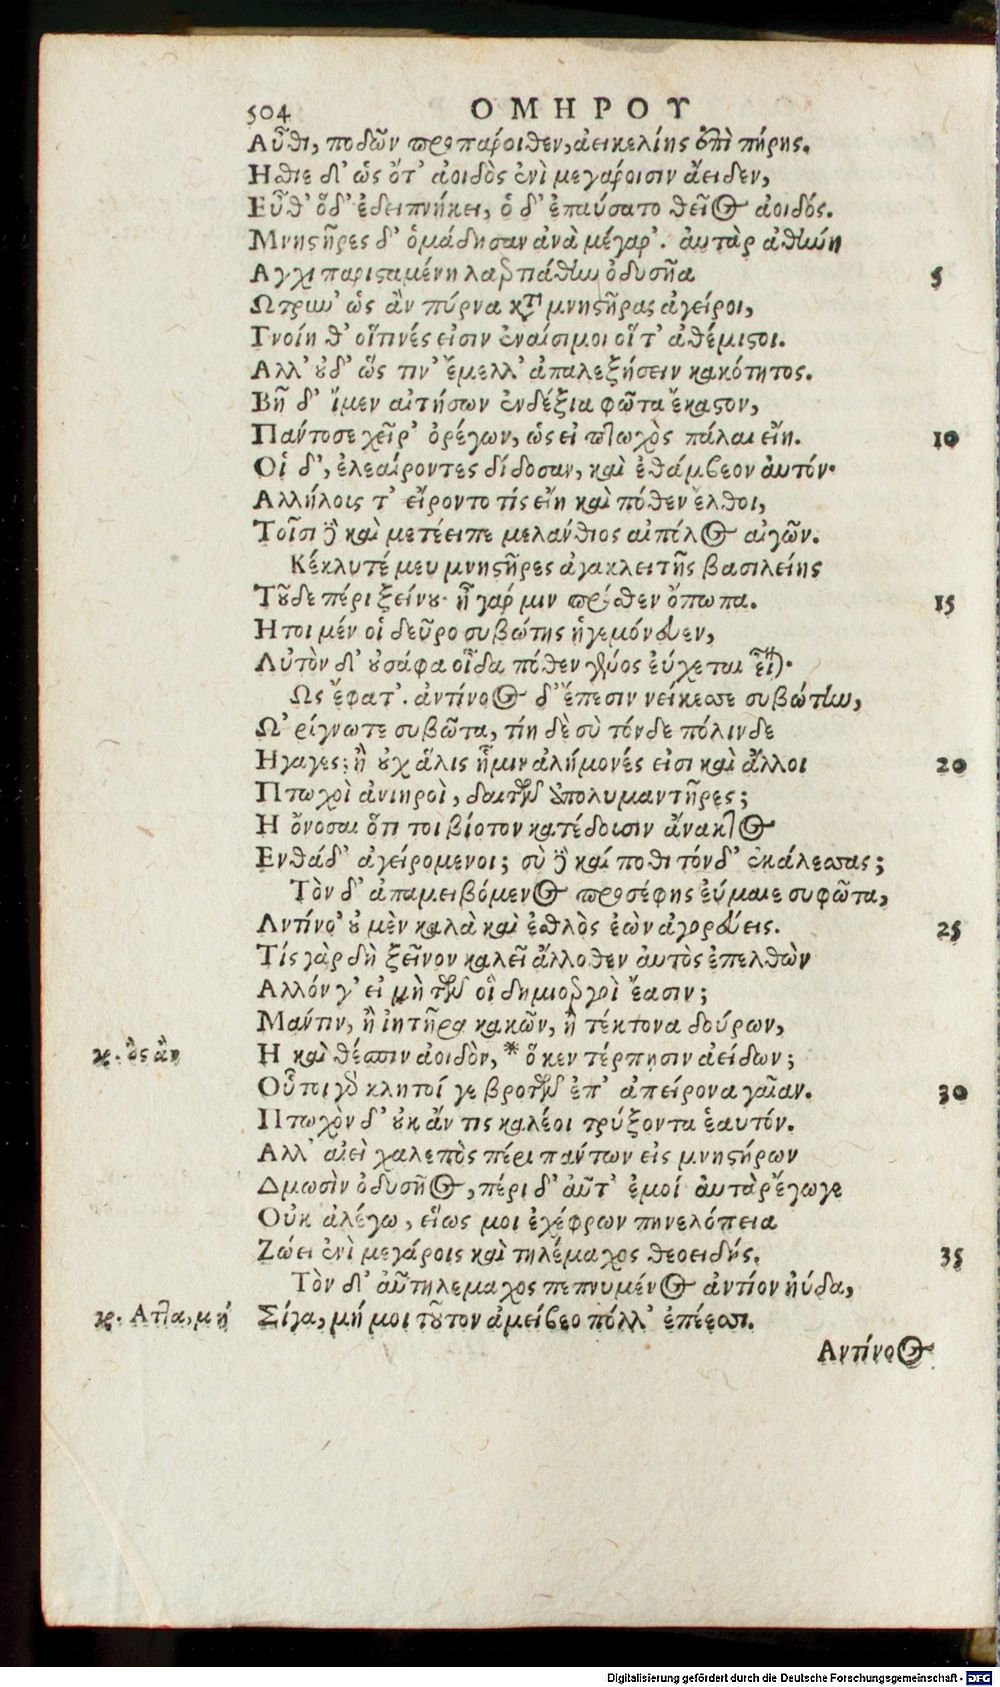 504 ΟΜΗΡΟΥ
Αὖθι, ποδῶν προπάροιθεν, ἀεικελίης ἐπὶ πήρης.
Ησθιε δ' ὡς ὅτ' ἀοιδὸς ἐνὶ μεγάροισιν ἄειδεν,
Εὖθ' ὅδ' ἐδειπνήκει, ὁ δ' ἐπαύσατο θεῖος ἀοιδός.
Μνηστῆρες δ' ὁμάδησαν ἀνὰ μέγαρ'. αὐτὰρ ἀθήνη
Αγχι παρισταμένη λαερτιάδην ὀδυσῆα 5
Ωτρυν' ὡς ἂν πύρνα κατὰ μνηστῆρας ἀγείροι,
Γνοίη θ' οἵτινές εἰσιν ἐναίσιμοι οἵ τ' ἀθέμιστοι.
Αλλ' οὐδ' ὥς τιν' ἔμελλ' ἀπαλεξήσειν κακότητος.
Βῆ δ' ἴμεν αἰτήσων ἐνδέξια φῶτα ἕκαστον,
Πάντοσε χεῖρ' ὀρέγων, ὡς εἰ πτωχὸς πάλαι εἴη. 10
Οἱ δ', ἐλεαίροντες δίδοσαν, καὶ ἐθάμβεον αὐτόν·
Αλλήλοις τ' εἴροντο τίς εἴη καὶ πόθεν ἔλθοι,
Τοῖσι δὲ καὶ μετέειπε μελάνθιος αἰπόλος αἰγῶν.
Κέκλυτέ μευ μνηστῆρες ἀγακλειτῆς βασιλείης
Τοῦδε πέρι ξείνου· ἦ γάρ μιν πρόσθεν ὄπωπα. 15
Ητοι μέν οἱ δεῦρο συβώτης ἡγεμόνευεν,
Αὐτὸν δ' οὐ σάφα οἶδα πόθεν γένος εὔχεται εἶναι·
Ως ἔφατ'. ἀντίνοος δ' ἔπεσιν νείκεσσε συβώτην,
Ω' ρίγνωτε συβῶτα, τίη δὲ σὺ τόνδε πόλινδε
Ηγαγες; ἢ οὐχ ἅλις ἧμιν ἀλήμονές εἰσι καὶ ἄλλοι 20
Πτωχοὶ ἀνιηροὶ, δαιτῶν ἀπολυμαντῆρες;
Η ὄνοσαι ὅτι τοι βίοτον κατέδουσιν ἄνακτος
Ενθάδ' ἀγειρομενοι; σὺ δὲ καί ποθι τόνδ' ἐκάλεσσας;
Τὸν δ' ἀπαμειβόμενος προσέφης εὔμαιε συβῶτα,
Αντίνο' οὐ μὲν καλὰ καὶ ἐσθλὸς ἐὼν ἀγορεύεις. 25
Τίς γὰρ δὴ ξεῖνον καλεῖ ἄλλοθεν αὐτὸς ἐπελθὼν
Αλλόν γ' εἰ μὴ τῶν οἳ δημιοεργοὶ ἔασιν;
Μάντιν, ἢ ἰητῆρα κακῶν, ἢ τέκτονα δούρων,
γρ. ὃς ἂν
Η καὶ θέσπιν ἀοιδὸν, * ὅ κεν τέρπησιν ἀείδων;
Οὗτοι γὰρ κλητοί γε βροτῶν ἐπ' ἀπείρονα γαῖαν. 30
Πτωχὸν δ' οὐκ ἄν τις καλέοι τρύξοντα ἑαυτόν.
Αλλ' αἰεὶ χαλεπὸς πέρι πάντων εἰς μνηστήρων
Δμωσὶν ὀδυσῆος, πέρι δ' αὖτ' ἐμοί αὐτὰρ ἔγωγε
Οὐκ ἀλέγω, εἵως μοι ἐχέφρων πηνελόπεια
Ζώει ἐνὶ μεγάροις καὶ τηλέμαχος θεοειδής. 35
Τὸν δ' αὖ τηλεμαχος πεπνυμένος ἀντίον ηὔδα,
γρ. Αττα, μή
Σίγα, μή μοι τοῦτον ἀμείβεο πόλλ' ἐπέεσσι.
Αντίνοος
Digitalisierung gefördert durch die Deutsche Forschungsgemeinschaft - DFG